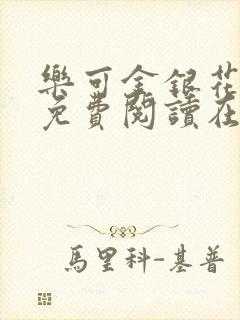 樂可金銀花
免費閱讀在
馬里科-基普